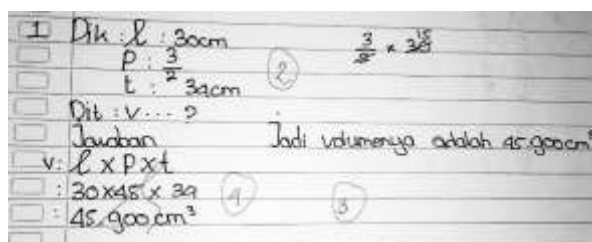 1 Dik : l : 30cm
p : 3/2
t : 34cm
3/2 × 30 15
2
Dit : v.... ?
Jawaban
Jadi volumenya adalah 45.900cm³
v: l x p x t
: 30x45 x 34
4
: 45.900 cm³
3